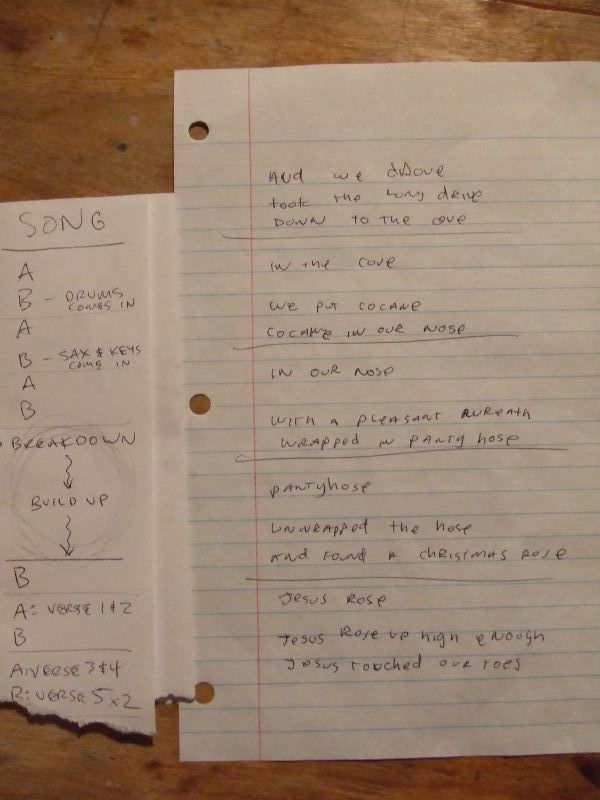 SONG
A
B - DRUMS
COMES IN
A
B - SAX & KEYS
COME IN
A
B
BREAKDOWN
BUILD UP
B
A: VERSE 1 & 2
B
A: VERSE 3 & 4
B: VERSE 5 x 2
AND we dRove
took the long drive
DOWN TO THE cove
IN the COVE
We put COCANE
COCANE IN OUR NOSE
IN OUR NOSE
WITH A PLEASANT
WRAPPED IN PANTY HOSE
PANTYHOSE
UNWRAPPED the hose
AND FOUND A CHRISTMAS ROSE
JESUS ROSE
JESUS ROSE UP high eNough
JESUS TOUCHED OUR TOES